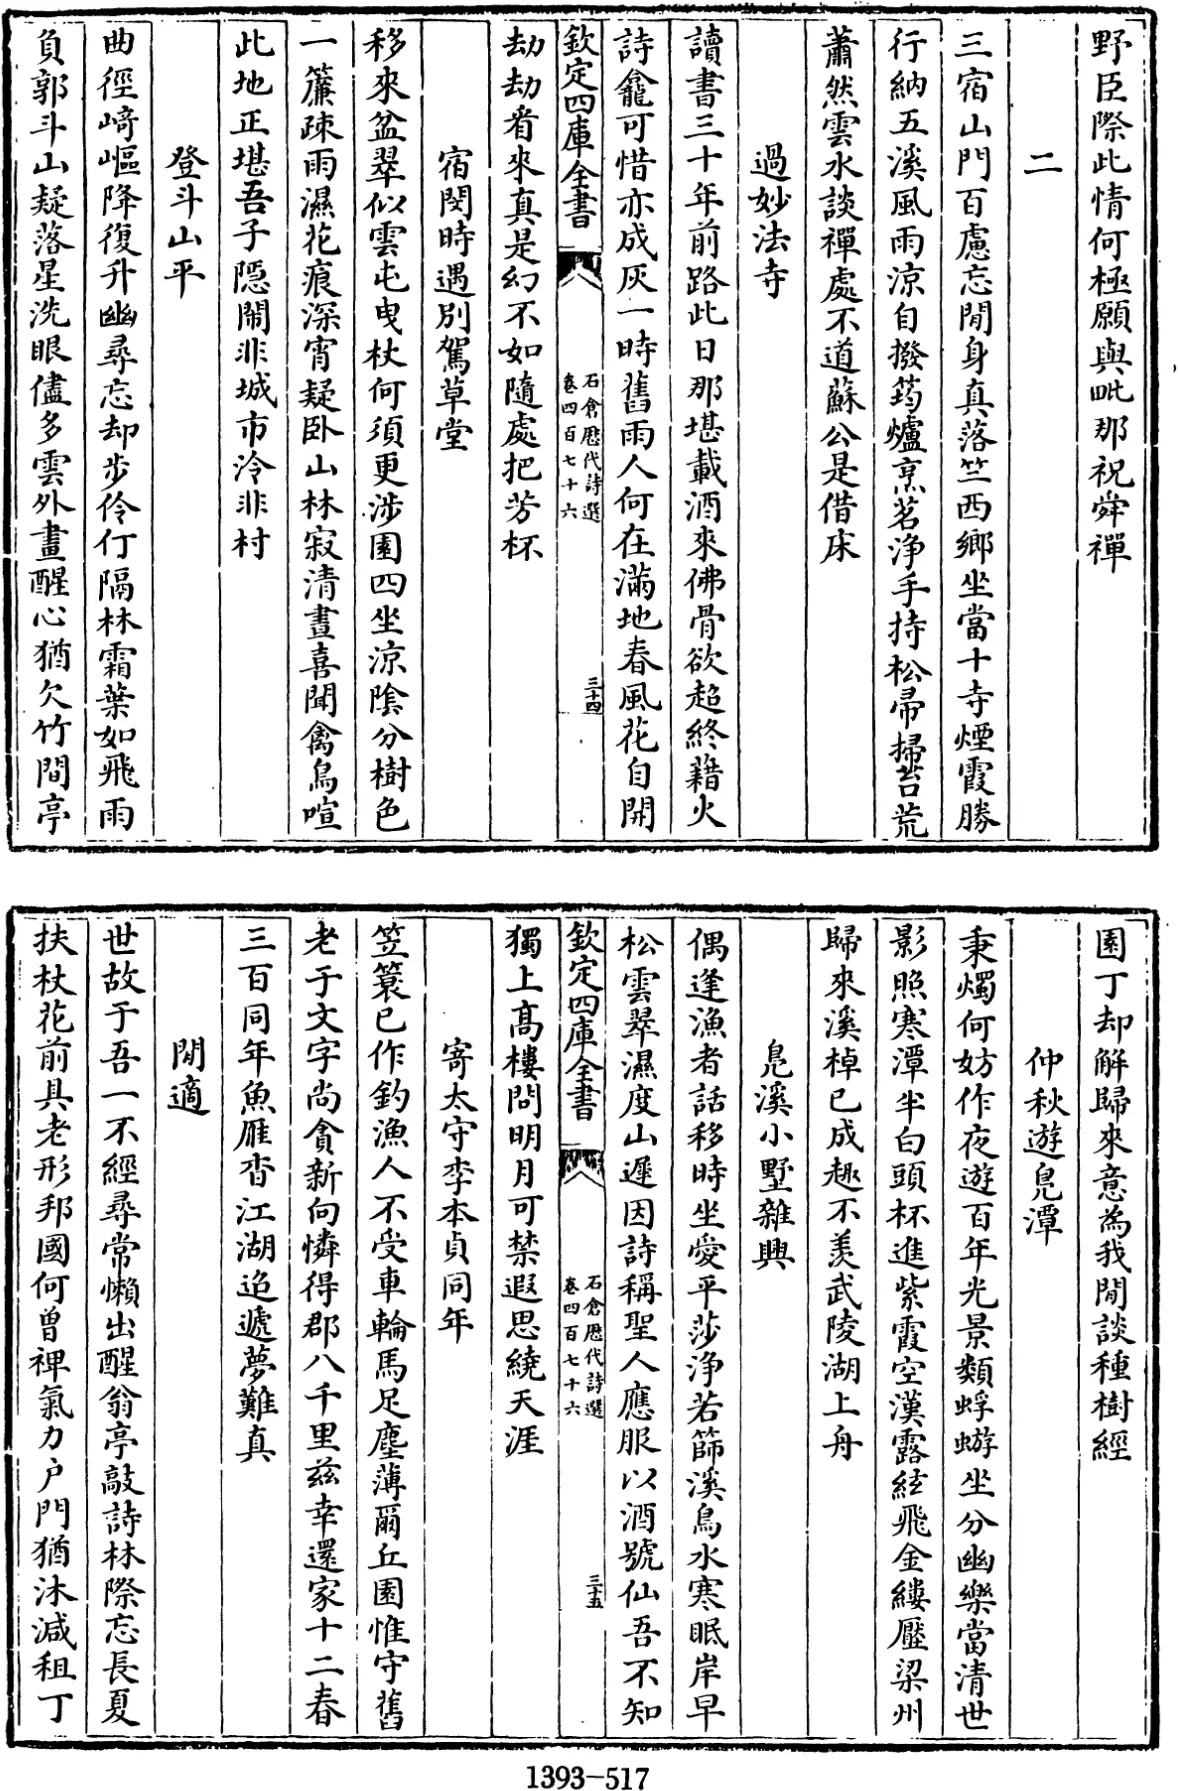 野臣際此情何極願與毗那祝舜禪
二
三宿山門百慮忘閒身真落竺西鄉坐當十寺煙霞勝
行納五溪風雨涼自撥筠爐烹茗淨手持松帚掃苔荒
蕭然雲水談禪處不道蘇公是借床
過妙法寺
讀書三十年前路此日那堪載酒來佛骨欲超終藉火
詩龕可惜亦成灰一時舊雨人何在滿地春風花自開
欽定四庫全書
石倉歴代詩選
卷四百七十六
三十四
劫劫看來真是幻不如隨處把芳杯
宿閔時遇別駕草堂
移來盆翠似雲屯曳杖何須更涉園四坐涼陰分樹色
一簾疎雨濕花痕深宵疑卧山林寂清晝喜聞禽鳥喧
此地正堪吾子隱鬧非城市冷非村
登斗山平
曲徑崎嶇降復升幽尋忘却步伶仃隔林霜葉如飛雨
負郭斗山疑落星洗眼儘多雲外畫醒心猶欠竹間亭
園丁却解歸來意為我閒談種樹經
仲秋遊鳬潭
秉燭何妨作夜遊百年光景類蜉蝣坐分幽樂當清世
影照寒潭半白頭杯進紫霞空漢露絃飛金縷壓梁州
歸來溪棹已成趣不羡武陵湖上舟
鳬溪小墅雜興
偶逢漁者話移時坐愛平莎淨若篩溪鳥水寒眠岸早
松雲翠濕度山遲因詩稱聖人應服以酒號仙吾不知
欽定四庫全書
石倉歴代詩選
卷四百七十六
三十五
獨上高樓問明月可禁遐思繞天涯
寄太守李本貞同年
笠簑已作釣漁人不受車輪馬足塵薄爾丘園惟守舊
老于文字尚貪新向憐得郡八千里兹幸還家十二春
三百同年魚雁杳江湖迢遞夢難真
閒適
世故于吾一不經尋常懶出醒翁亭敲詩林際忘長夏
扶杖花前具老形邦國何曾禆氣力户門猶沐減租丁
1393-517